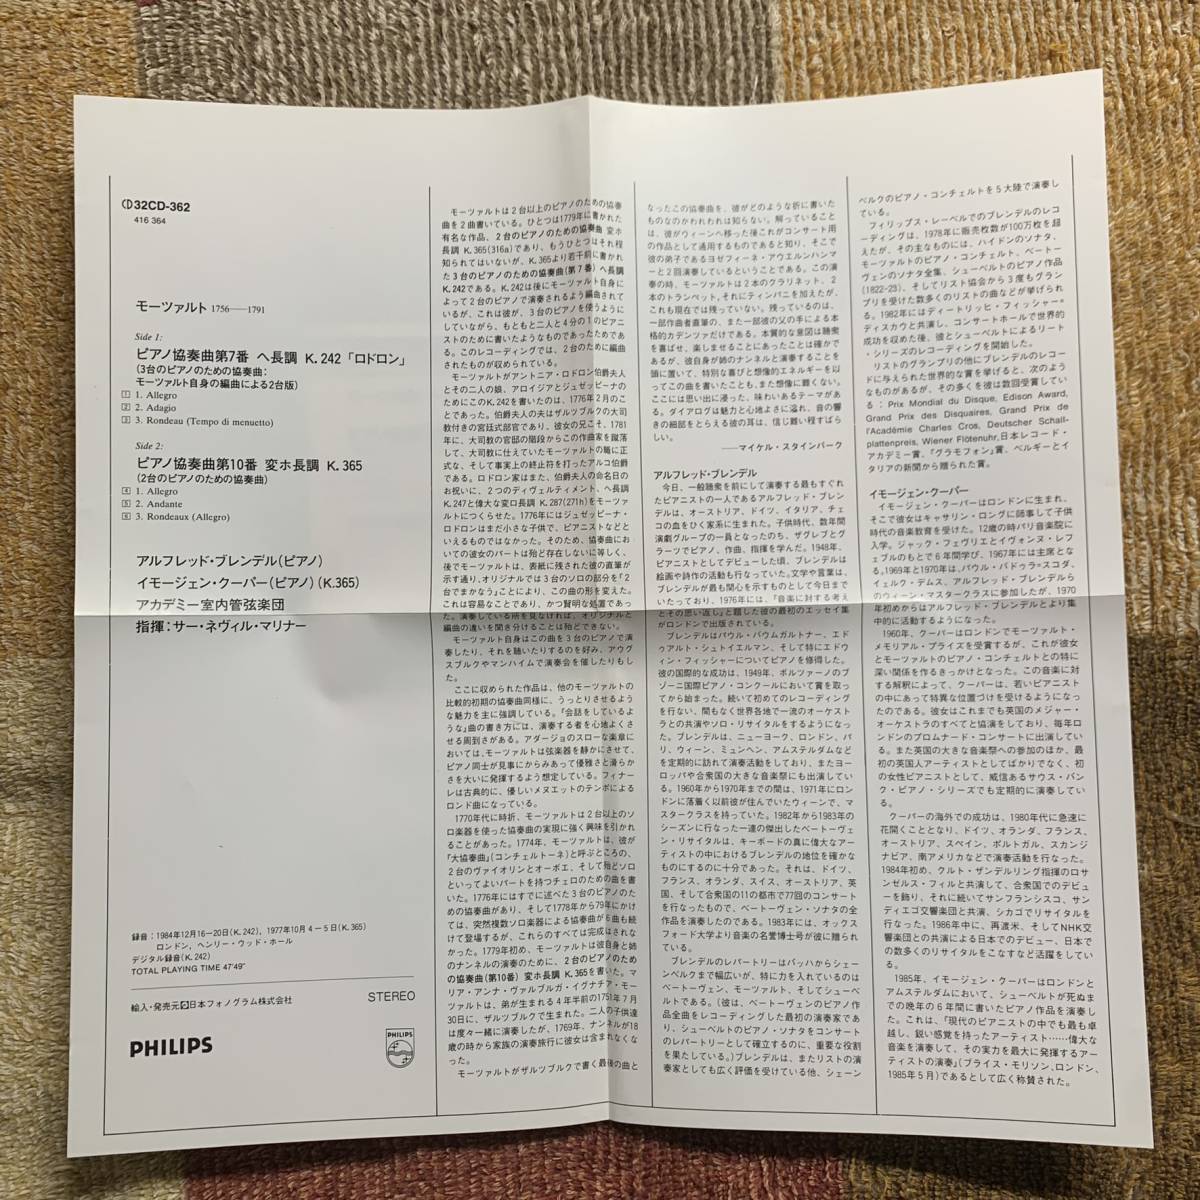 32CD-362
416 364
モーツァルト 1756——1791
Side 1:
ピアノ協奏曲第7番 ヘ長調 K.242「ロドロン」
(3台のピアノのための協奏曲:
モーツァルト自身の編曲による2台版)
1 1. Allegro
2 2. Adagio
3 3. Rondeau (Tempo di menuetto)
Side 2:
ピアノ協奏曲第10番 変ホ長調 K.365
(2台のピアノのための協奏曲)
4 1. Allegro
5 2. Andante
6 3. Rondeaux (Allegro)
アルフレッド・ブレンデル(ピアノ)
イモージェン・クーパー(ピアノ)(K.365)
アカデミー室内管弦楽団
指揮:サー・ネヴィル・マリナー
録音:1984年12月16—20日(K.242)、1977年10月4—5日(K.365)
ロンドン、ヘンリー・ウッド・ホール
デジタル録音(K.242)
TOTAL PLAYING TIME 47'49"
輸入・発売元 日本フォノグラム株式会社
STEREO
PHILIPS
PHILIPS
モーツァルトは2台以上のピアノのための協奏
曲を2曲書いている。ひとつは1779年に書かれた
有名な作品、2台のピアノのための協奏曲 変ホ
長調 K.365(316a)であり、もうひとつはそれ程
知られてはいないが、K.365より若干前に書かれ
た3台のピアノのための協奏曲(第7番)ヘ長調
K.242である。K.242は後にモーツァルト自身に
よって2台のピアノで演奏されるよう編曲されて
いるが、これは彼が、3台のピアノを使うように
していながら、もともと二人と4分の1のピアニ
ストのために書いたようなものであったためであ
る。このレコーディングでは、2台のために編曲
されたものが収められている。
モーツァルトがアントニア・ロドロン伯爵夫人
とその二人の娘、アロイジアとジュゼッピーナの
ためにこのK.242を書いたのは、1776年2月のこ
とであった。伯爵夫人の夫はザルツブルクの大司
教付きの宮廷式部官であり、彼女の兄こそ、1781
年に、大司教の官邸の階段からこの作曲家を蹴落
して、大司教に仕えていたモーツァルトの職に正
式な、そして事実上の終止符を打ったアルコ伯爵
である。ロドロン家はまた、伯爵夫人の命名日の
お祝いに、2つのディヴェルティメント、ヘ長調
K.247と偉大な変ロ長調 K.287(271h)をモーツァ
ルトにつくらせた。1776年にはジュゼッピーナ・
ロドロンはまだ小さな子供で、ピアニストなどと
いえるものではなかった。そのため、協奏曲にお
いての彼女のパートは殆ど存在しないに等しく、
後でモーツァルトは、表紙に残された彼の直筆が
示す通り、オリジナルでは3台のソロの部分を「2
台でまかなう」ことにより、この曲の形を変えた。
これは容易なことであり、かつ賢明な処置であっ
た。演奏している所を見なければ、オリジナルと
編曲の違いを聞き分けることは殆どできない。
モーツァルト自身はこの曲を3台のピアノで演
奏したり、それを聴いたりするのを好み、アウグ
スブルクやマンハイムで演奏会を催したりもし
た。
ここに収められた作品は、他のモーツァルトの
比較的初期の協奏曲同様に、うっとりさせるよう
な魅力を主に強調している。「会話をしているよ
うな」曲の書き方には、演奏する者を心地よくさ
せる周到さがある。アダージョのスローな楽章に
おいては、モーツァルトは弦楽器を静かにさせて、
ピアノ同士が見事にからみあって優雅さと滑らか
さを大いに発揮するよう想定している。フィナー
レは古典的に、優しいメヌエットのテンポによる
ロンド曲になっている。
1770年代に時折、モーツァルトは2台以上のソ
ロ楽器を使った協奏曲の実現に強く興味を引かれ
ることがあった。1774年、モーツァルトは、彼が
「大協奏曲」(コンチェルトーネ)と呼ぶところの、
2台のヴァイオリンとオーボエ、そして殆どソロ
といってよいパートを持つチェロのための曲を書
いた。1776年にはすでに述べた3台のピアノのた
めの協奏曲があり、そして1778から79年にかけ
ては、突然複数ソロ楽器による協奏曲が6曲も続
けて登場するが、これらのすべては完成はされな
かった。1779年初め、モーツァルトは彼自身と姉
のナンネルの演奏のために、2台のピアノのため
の協奏曲(第10番)変ホ長調 K.365を書いた。マ
リア・アンナ・ヴァルブルガ・イグナチア・モー
ツァルトは、弟が生まれる4年半前の1751年7月
30日に、ザルツブルクで生まれた。二人の子供達
は度々一緒に演奏したが、1769年、ナンネルが18
歳の時から家族の演奏旅行に彼女は含まれなくな
った。
モーツァルトがザルツブルクで書く最後の曲と
なったこの協奏曲を、彼がどのような折に書いた
ものなのかわれわれは知らない。解っていること
は、彼がウィーンへ移った後これがコンサート用
の作品として通用するものであると知り、そこで
彼の弟子であるヨゼフィーネ・アウエルンハンマ
ーと2回演奏しているということである。この演
奏の時、モーツァルトは2本のクラリネット、2
本のトランペット、それにティンパニを加えたが、
これも現在では残っていない。残っているのは、
一部作曲者直筆の、また一部彼の父の手による本
格的カデンツァだけである。本質的な意図は聴衆
を喜ばせ、楽しませることにあったことは確かで
あるが、彼自身が姉のナンネルと演奏することを
頭に置いて、特別な喜びと想像的エネルギーを以
ってこの曲を書いたことも、また想像に難くない。
ここには思い出に浸った、味わいあるテーマがあ
る。ダイアログは魅力と心地よさに溢れ、音の響
きの細部をとらえる彼の耳は、信じ難い程すばら
しい。
——マイケル・スタインバーク
アルフレッド・ブレンデル
今日、一般聴衆を前にして演奏する最もすぐれ
たピアニストの一人であるアルフレッド・ブレン
デルは、オーストリア、ドイツ、イタリア、チェ
コの血をひく家系に生まれた。子供時代、数年間
演劇グループの一員となったのち、ザグレブとグ
ラーツでピアノ、作曲、指揮を学んだ。1948年、
ピアニストとしてデビューした頃、ブレンデルは
絵画や詩作の活動も行なっていた。文学や言葉は、
ブレンデルが最も関心を示すものとして今日まで
いたっており、1976年には、『音楽に対する考え
とその思い返し』と題した彼の最初のエッセイ集
がロンドンで出版されている。
ブレンデルはパウル・バウムガルトナー、エド
ゥアルト・シュトイエルマン、そして特にエドウ
ィン・フィッシャーについてピアノを修得した。
彼の国際的な成功は、1949年、ボルツァーノのブ
ゾーニ国際ピアノ・コンクールにおいて賞を取っ
てから始まった。続いて初めてのレコーディング
を行ない、間もなく世界各地で一流のオーケスト
ラとの共演やソロ・リサイタルをするようになっ
た。ブレンデルは、ニューヨーク、ロンドン、パ
リ、ウィーン、ミュンヘン、アムステルダムなど
を定期的に訪れて演奏活動をしており、またヨー
ロッパや合衆国の大きな音楽祭にも出演している。
1960年から1970年までの間は、1971年にロン
ドンに落着く以前彼が住んでいたウィーンで、マ
スタークラスを持っていた。1982年から1983年の
シーズンに行なった一連の傑出したベートーヴェ
ン・リサイタルは、キーボードの真に偉大なアー
ティストの中におけるブレンデルの地位を確かな
ものにするのに十分であった。それは、ドイツ、
フランス、オランダ、スイス、オーストリア、英
国、そして合衆国の11の都市で77回のコンサート
を行なったもので、ベートーヴェン・ソナタの全
作品を演奏したのである。1983年には、オックス
フォード大学より音楽の名誉博士号が彼に贈られ
ている。
ブレンデルのレパートリーはバッハからシェー
ンベルクまで幅広いが、特に力を入れているのは
ベートーヴェン、モーツァルト、そしてシューベ
ルトである。(彼は、ベートーヴェンのピアノ作
品全曲をレコーディングした最初の演奏家であ
り、シューベルトのピアノ・ソナタをコンサート
のレパートリーとして確立するのに、重要な役割
を果たしている。)ブレンデルは、またリストの演
奏家としても広く評価を受けている他、シェーン
ベルクのピアノ・コンチェルトを5大陸で演奏し
ている。
フィリップス・レーベルでのブレンデルのレコ
ーディングは、1978年に販売枚数が100万枚を超
えたが、その主なものには、ハイドンのソナタ、
モーツァルトのピアノ・コンチェルト、ベートー
ヴェンのソナタ全集、シューベルトのピアノ作品
(1822-23)、そしてリスト協会から3度もグラン
プリを受けた数多くのリストの曲などが挙げられ
る。1982年にはディートリッヒ・フィッシャー=
ディスカウと共演し、コンサートホールで世界的
成功を収めた後、彼とシューベルトによるリート
・シリーズのレコーディングを開始した。
リストのグランプリの他にブレンデルのレコー
ドに与えられた世界的な賞を挙げると、次のよう
なものがあるが、その多くを彼は数回受賞してい
る:Prix Mondial du Disque, Edison Award,
Grand Prix des Disquaires, Grand Prix de
l'Académie Charles Cros, Deutscher Schall-
plattenpreis, Wiener Flötenuhr,日本レコード・
アカデミー賞、『グラモフォン』賞、ベルギーとイ
タリアの新聞から贈られた賞。
イモージェン・クーパー
イモージェン・クーパーはロンドンに生まれ、
そこで彼女はキャサリン・ロングに師事して子供
時代の音楽教育を受けた。12歳の時パリ音楽院に
入学。ジャック・フェヴリエとイヴォンヌ・レフ
ェブルのもとで6年間学び、1967年には主席とな
る。1969年と1970年は、パウル・バドゥラ=スコダ、
イェルク・デムス、アルフレッド・ブレンデルら
のウィーン・マスタークラスに参加したが、1970
年初めからはアルフレッド・ブレンデルとより集
中的に活動するようになった。
1960年、クーパーはロンドンでモーツァルト・
メモリアル・プライズを受賞するが、これが彼女
とモーツァルトのピアノ・コンチェルトとの特に
深い関係を作るきっかけとなった。この音楽に対
する解釈によって、クーパーは、若いピアニスト
の中にあって特異な位置づけを受けるようになっ
たのである。彼女はこれまでも英国のメジャー・
オーケストラのすべてと協演をしており、毎年ロ
ンドンのプロムナード・コンサートに出演してい
る。また英国の大きな音楽祭への参加のほか、最
初の英国人アーティストとしてばかりでなく、初
の女性ピアニストとして、威信あるサウス・バン
ク・ピアノ・シリーズでも定期的に演奏してい
る。
クーパーの海外での成功は、1980年代に急速に
花開くこととなり、ドイツ、オランダ、フランス、
オーストリア、スペイン、ポルトガル、スカンジ
ナビア、南アメリカなどで演奏活動を行なった。
1984年初め、クルト・ザンデルリング指揮のロサ
ンゼルス・フィルと共演して、合衆国でのデビュ
ーを飾り、それに続いてサンフランシスコ、サン
ディエゴ交響楽団と共演、シカゴでリサイタルを
行なった。1986年中に、再渡米、そしてNHK交
響楽団との共演による日本でのデビュー、日本で
の数多くのリサイタルをこなすなど活躍をしてい
る。
1985年、イモージェン・クーパーはロンドンと
アムステルダムにおいて、シューベルトが死ぬま
での晩年の6年間に書いたピアノ作品を演奏し
た。これは、「現代のピアニストの中でも最も卓
越し、鋭い感覚を持ったアーティスト……偉大な
音楽を演奏して、その実力を最大に発揮するアー
ティストの演奏」(ブライス・モリソン、ロンドン、
1985年5月)であるとして広く称賛された。